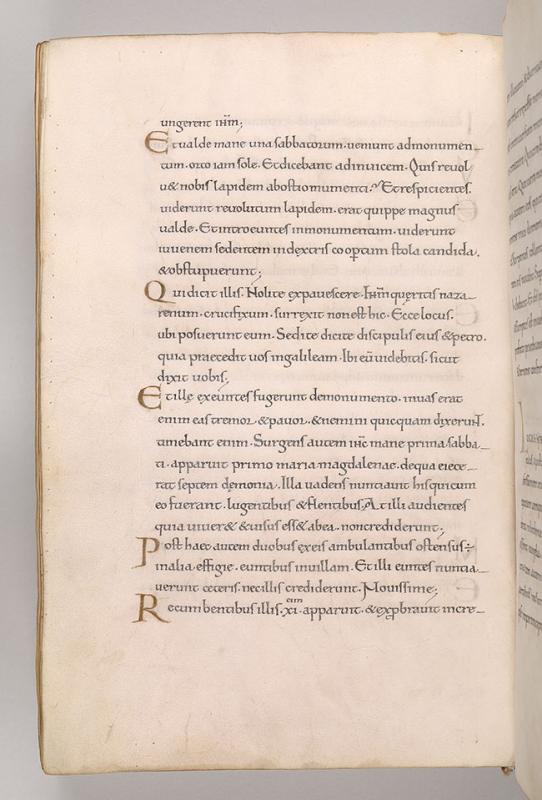 ungerent ihm;
Et ualde mane una sabbatorum. ueniunt admonumen_
tum. orto iam sole. Et dicebant adinuicem. Quis reuol
u& nobis lapidem abostio monumenti.? Et respicientes.
uiderunt reuolutum lapidem. erat quippe magnus
ualde. Et introeuntes inmonumentum. uiderunt
iuuenem sedentem indextris coopertum stola candida.
&obstupuerunt;
Qui dicit illis. Nolite expauescere. ihm queritis naza_
renum. crucifixum. surrexit non est hic. Ecce locus.
ubi posuerunt eum. Sed ite dicite discipulis eius &petro.
quia praecedit uos ingalileam. Ibi eū uidebitis. sicut
dixit uobis;
Et illę exeuntes fugerunt demonumento. inuaserat
enim eas tremor. &pauor. &nemini quicquam dixerunt.
timebant enim. Surgens autem ihc mane prima sabba_
ti. apparuit primo maria magdalenae. dequa eiece_
rat septem dęmonia. Illa uadens nuntiauit hisqui cum
eo fuerant. lugentibus &flentibus. At illi audientes
quia uiuer& &uisus ess& abea. noncrediderunt;
Post haec autem duobus exeis ambulantibus ostensus÷
inalia effigie. euntibus inuillam. Et illi euntes nuntia_
uerunt ceteris. necillis crediderunt. Nouissime;
Recumbentibus illis. xi. apparuit. &exprobrauit incre_